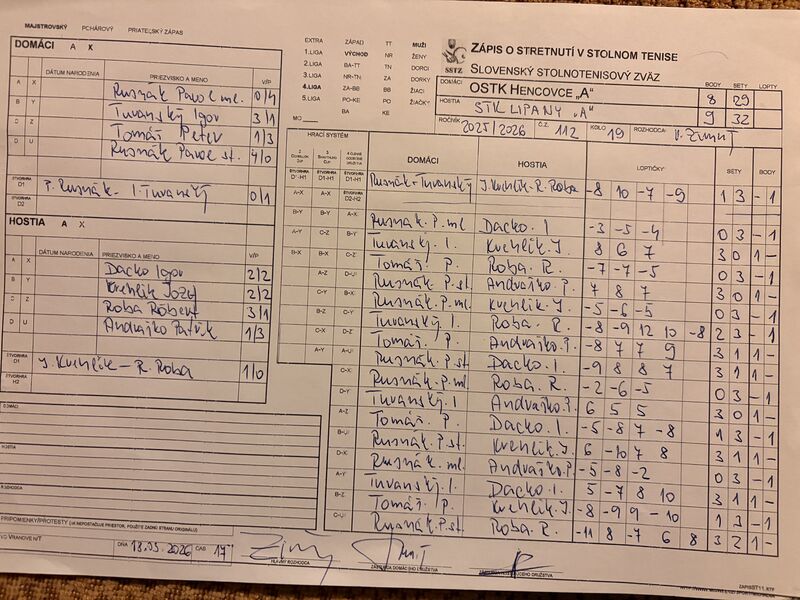 MAJSTROVSKÝ POHÁROVÝ PRIATEĽSKÝ ZÁPAS
DOMÁCI A X
DÁTUM NARODENIA PRIEZVISKO A MENO V/P
A X Rusnák Pavol ml. 0/4
B Y Turanský Igor 3/1
C Z Tomáš Peter 1/3
D U Rusnák Pavol st. 4/0
ŠTVORHRA D1 P. Rusnák - I. Turanský 0/1
ŠTVORHRA D2
HOSTIA A X
DÁTUM NARODENIA PRIEZVISKO A MENO V/P
A X Dacko Igor 2/2
B Y Krehlik Jozef 2/2
C Z Roba Róbert 3/1
D U Andrajko Patrik 1/3
ŠTVORHRA D1 J. Krehlik - R. Roba 1/0
ŠTVORHRA H2
DOMÁCI
HOSTIA
ROZHODCA
PRIPOMIENKY/PROTESTY (AK NEPOSTAČUJE PRIESTOR, POUŽITE ZADNÚ STRANU ORIGINÁLU)
VO VRANOVE N/T DŇA 13.03.2026 ČAS 17
HLAVNÝ ROZHODCA
EXTRA ZÁPAD TT MUŽI
1.LIGA VÝCHOD NR ŽENY
2.LIGA BA-TT TN DORCI
3.LIGA NR-TN ZA DORKY
4.LIGA ZA-BB BB ŽIACI
5.LIGA PO-KE PO ŽIAČKY
MO BA KE
SSTZ
ZÁPIS O STRETNUTÍ V STOLNOM TENISE
SLOVENSKÝ STOLNOTENISOVÝ ZVÄZ
BODY SETY LOPTY
DOMÁCI OSTK HENCOVCE „A" 8 29
HOSTIA STK LIPANY „A" 9 32
ROČNÍK 2025/2026 Č.Z. 112 KOLO 19 ROZHODCA
HRACÍ SYSTÉM
DOMÁCI HOSTIA LOPTIČKY SETY BODY
Rusnák - Turanský J. Krehlik - R. Roba -8 10 -7 -9 1 3 - 1
Rusnák. P. ml Dacko. I -3 -5 -4 0 3 - 1
Turanský. I. Krehlik. J. 8 6 7 3 0 1 -
Tomáš. P. Roba. R. -7 -7 -5 0 3 - 1
Rusnák. P. st. Andrajko P. 7 8 7 3 0 1 -
Rusnák. P. ml. Krehlik. J. -5 -6 -5 0 3 - 1
Turanský. I. Roba. R. -8 -9 12 10 -8 2 3 - 1
Tomáš. P. Andrajko. P. -8 7 7 9 3 1 1 -
Rusnák. P. st. Dacko. I. -9 8 8 7 3 1 1 -
Rusnák. P. ml Roba. R. -2 -6 -5 0 3 - 1
Turanský. I Andrajko. P. 6 5 5 3 0 1 -
Tomáš. P. Dacko. I. -5 -8 7 -8 1 3 - 1
Rusnák. P. st. Krehlik. J. 6 -10 7 8 3 1 1 -
Rusnák. ml. Andrajko. P. -5 -8 -2 0 3 - 1
Turanský. I. Dacko. I. 5 -7 8 10 3 1 1 -
Tomáš. P. Krehlik. J. -8 -9 9 -10 1 3 - 1
Rusnák. P. st. Roba. R. -11 8 -7 6 8 3 2 1 -